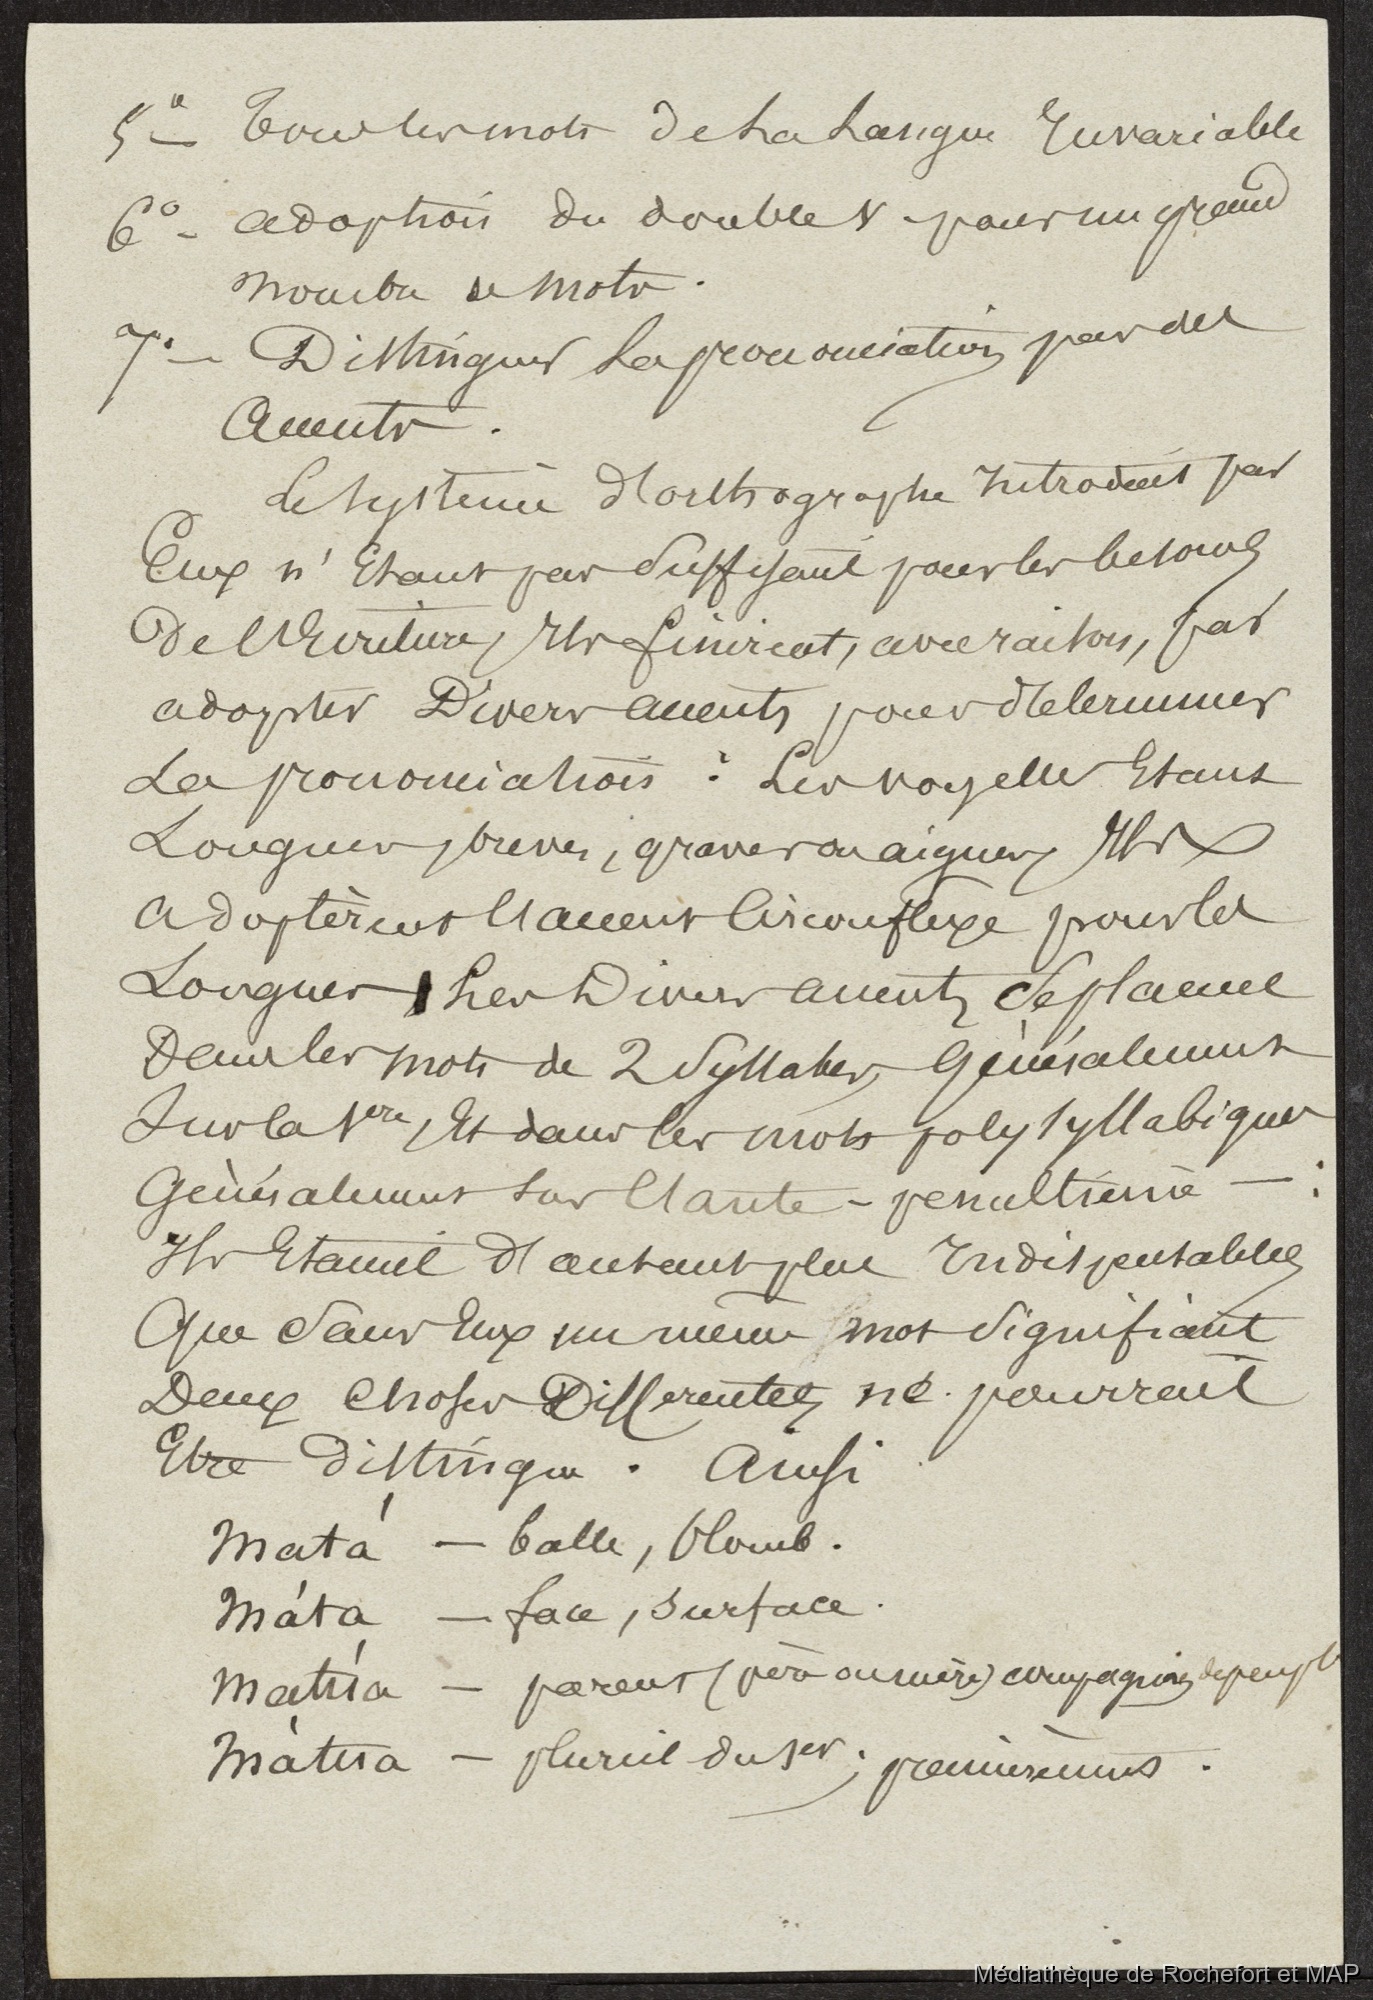 5° - Tous les mots de la Langue Invariable
6° - adoption du double v pour un grand
nombre de mots.
7° - Distinguer la prononciation par des
Accents.
Le Système d'orthographe introduit par
Eux n'Etant pas Suffisant pour les besoins
De l'Ecriture, Ils finirent, avec raison, par
adopter Divers accents pour déterminer
La prononciation : Les voyelles Etant
Longues, breves, graves ou aigues, Ils
adoptèrent l'accent Circonflexe pour les
Longues. Les Divers accents Se placent
Dans les mots de 2 Syllabes, Généralement
Sur la 1ère, Et dans les mots polysyllabiques
Généralement Sur l'ante-penultième - :
Ils Etaient d'autant plus Indispensables
Que Sans Eux un même mot Signifiant
Deux choses Differentes, ne pourrait
Etre distingué. Ainsi
Matá - balle, Plomb.
Máta - face, surface.
Matúa - parent (père ou mère) compagnie, de peupl
Mátua - pluriel du 1er ; premièrement.
Médiathèque de Rochefort et MAP